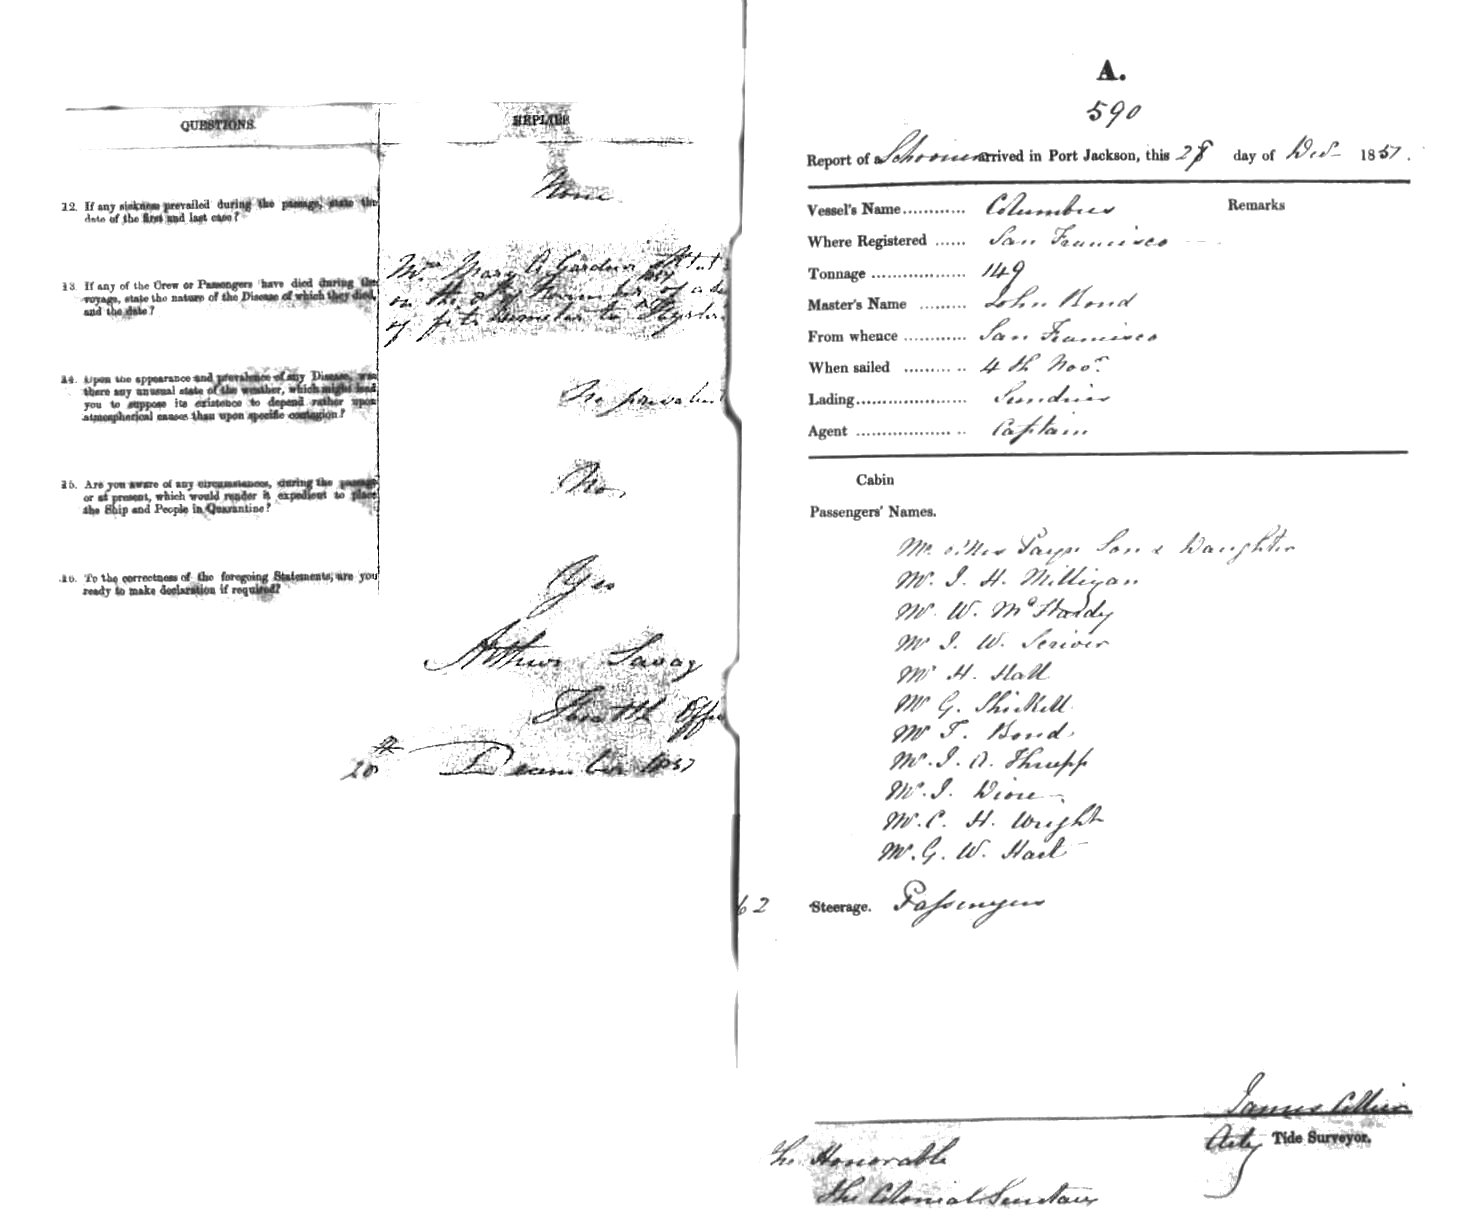 QUESTIONS.
REPLIES
None
12. If any sickness prevailed during the passage, state the
date of the first and last case?
Mrs Mary A Gardner
13. If any of the Crew or Passengers have died during the
voyage, state the nature of the Disease of which they died,
and the date?
on the November of a
of fits similar to
14. Upon the appearance and prevalence of any Disease, was
there any unusual state of the weather, which might lead
you to suppose its existence to depend rather upon
atmospherical causes than upon specific contagion?
No prevalent
15. Are you aware of any circumstances, during the passage
or at present, which would render it expedient to place
the Ship and People in Quarantine?
No
16. To the correctness of the foregoing Statements, are you
ready to make declaration if required?
Yes
Arthur Savag
Health Offi
December 1851
A.
590
Report of a Schooner arrived in Port Jackson, this 28 day of Decr 1851.
Vessel's Name............ Columbus Remarks
Where Registered ...... San Francisco
Tonnage .................. 149
Master's Name ......... John Bond
From whence ............ San Francisco
When sailed ......... .. 4th Novr.
Lading..................... Sundries
Agent .................. .. Captain
Cabin
Passengers' Names.
Mr & Mrs Payn Son & Daughter
Mr. J. H. Milligan
Mr. W. McHardy
Mr J. W. Scriver
Mr H. Hall
Mr G. Shickell
Mr T. Bond
Mr. J. A. Thrupp
Mr. J.
Mr. C. H. Wright
Mr. G. W. Hart
62 Steerage. Passengers
James
Actg Tide Surveyor.
The Honorable
The Colonial Secretary